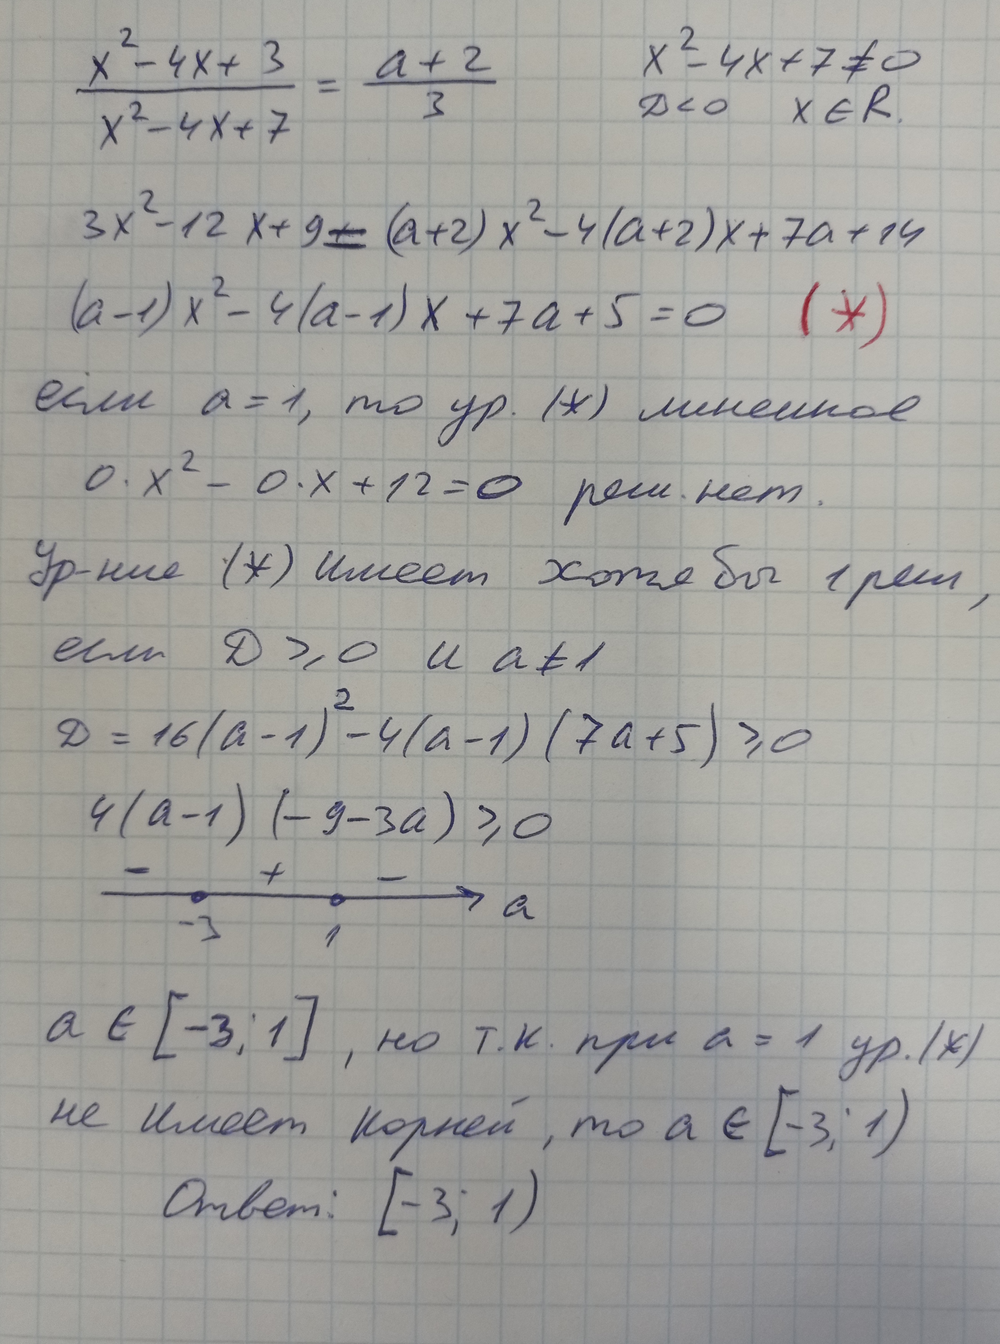 x²-4x+3 / x²-4x+7 = a+2 / 3    x²-4x+7≠0
D<0  x∈R.
3x²-12x+9=(a+2)x²-4(a+2)x+7a+14
(a-1)x²-4(a-1)x+7a+5=0  (*)
если a=1, то ур. (*) линейное
0·x²-0·x+12=0 реш. нет.
Ур-ние (*) имеет хотя бы 1 реш,
если D≥0 и a≠1
D=16(a-1)²-4(a-1)(7a+5)≥0
4(a-1)(-9-3a)≥0
- + -
-3 1 a
a∈[-3;1], но т.к. при a=1 ур.(*)
не имеет корней, то a∈[-3;1)
Ответ: [-3;1)